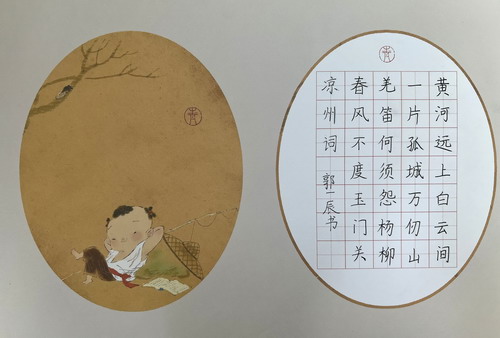 黄河远上白云间
一片孤城万仞山
羌笛何须怨杨柳
春风不度玉门关
凉州词
郭一辰书